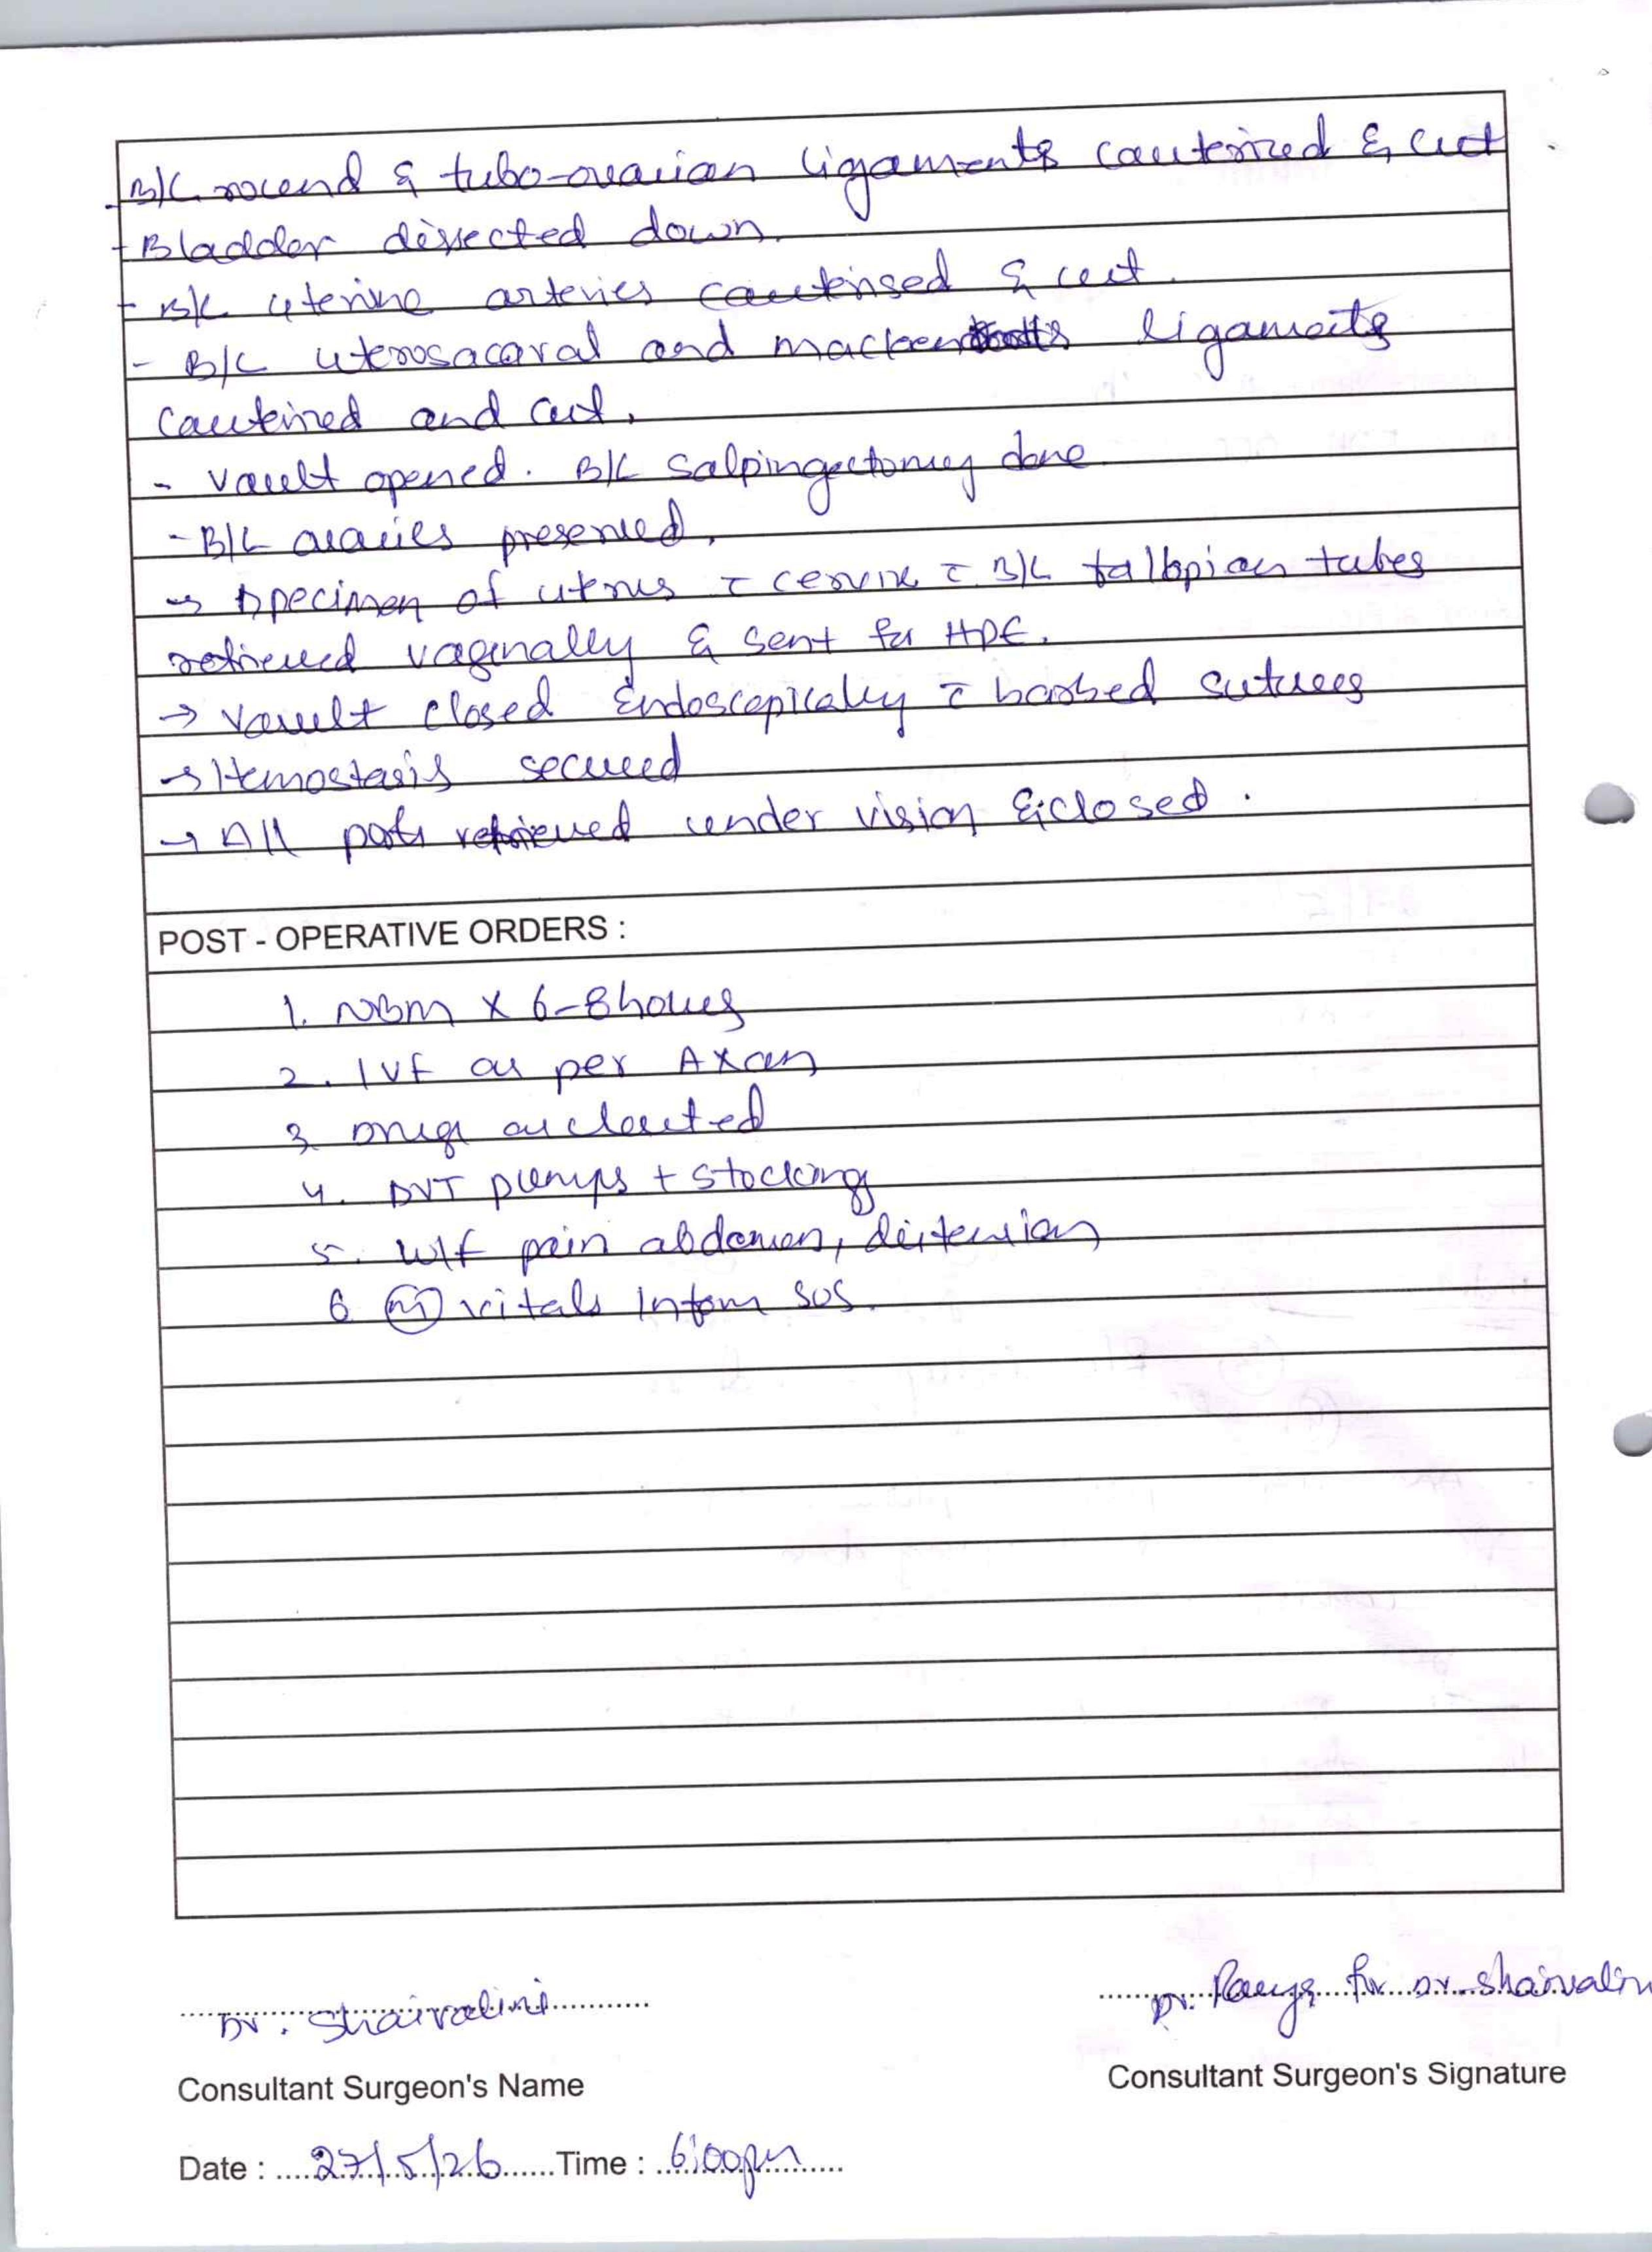 - B/L round & tubo-ovarian ligaments cauterized & cut
- Bladder dissected down.
- B/L uterine arteries cauterised & cut.
- B/L uterosacaral and ligaments
cauterized and cut.
- Vault opened. B/L Salpingectomy done
- B/L ovaries preserved.
→ Specimen of uterus c̄ cervix c̄ B/L fallopian tubes
retrieved vaginally & sent for HPE.
→ Vault closed Endoscopically c̄ barbed sutures
→ Hemostasis secured
→ All ports retrieved under vision & closed.
POST - OPERATIVE ORDERS :
1. NBM x 6-8 hours
2. IVF as per
3. Drugs as charted
4. DVT pumps + stockings
5. W/f pain abdomen, distension
6. vitals Inform SOS.
Dr. Shaivalini Dr. for Dr. Shaivalin
Consultant Surgeon's Name Consultant Surgeon's Signature
Date : 27/5/26 Time : 6:00pm